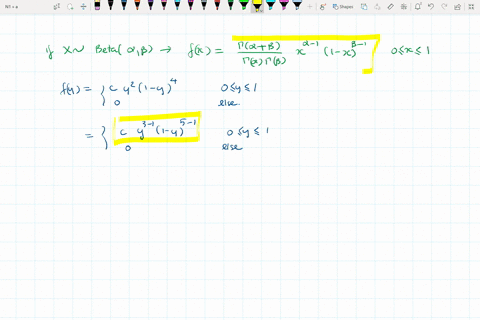 if X~ Beta(α,β) → f(x) = Γ(α+β) / Γ(α) Γ(β) x^{α-1} (1-x)^{β-1} 0≤x≤1
f(y) = { c y^2 (1-y)^4 0≤y≤1
0 else.
= { c y^{3-1} (1-y)^{5-1} 0≤y≤1
0 else